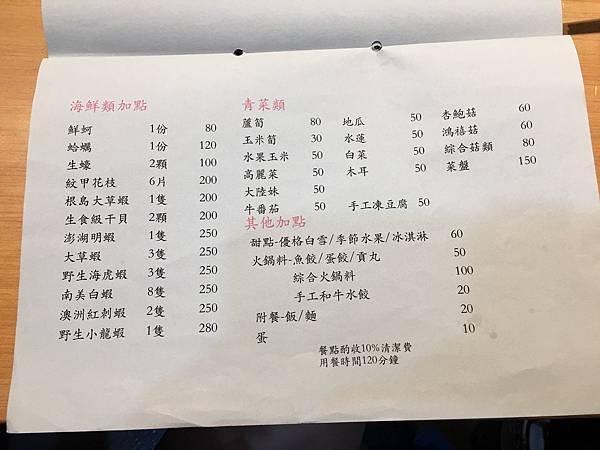 海鮮類加點
鮮蚵 1份 80
蛤蠣 1份 120
生蠔 2顆 100
紋甲花枝 6片 200
根島大草蝦 1隻 200
生食級干貝 2顆 200
澎湖明蝦 1隻 250
大草蝦 3隻 250
野生海虎蝦 3隻 250
南美白蝦 8隻 250
澳洲紅刺蝦 2隻 250
野生小龍蝦 1隻 280
青菜類
蘆筍 80
玉米筍 30
水果玉米 50
高麗菜 50
大陸妹 50
牛番茄 50
地瓜 50
水蓮 50
白菜 50
木耳 50
手工凍豆腐 50
杏鮑菇 60
鴻禧菇 60
綜合菇類 80
菜盤 150
其他加點
甜點-優格白雪/季節水果/冰淇淋 60
火鍋料-魚餃/蛋餃/貢丸 50
綜合火鍋料 100
手工和牛水餃 20
附餐-飯/麵 20
蛋 10
餐點酌收10%清潔費
用餐時間120分鐘